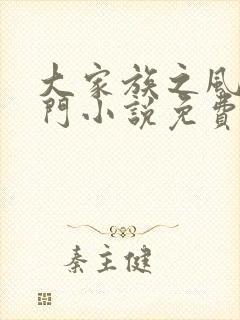 大家族之風
門小說免費
秦主健